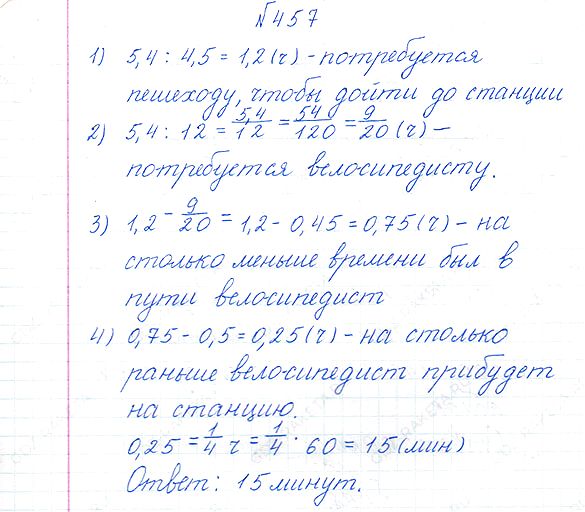 №457
1) 5,4 : 4,5 = 1,2 (ч) - потребуется
пешеходу, чтобы дойти до станции
2) 5,4 : 12 = 5,4/12 = 54/120 = 9/20 (ч) –
потребуется велосипедисту.
3) 1,2 - 9/20 = 1,2 - 0,45 = 0,75 (ч) - на
столько меньше времени был в
пути велосипедист
4) 0,75 - 0,5 = 0,25 (ч) - на столько
раньше велосипедист прибудет
на станцию.
0,25 = 1/4 ч = 1/4 · 60 = 15 (мин)
Ответ: 15 минут.